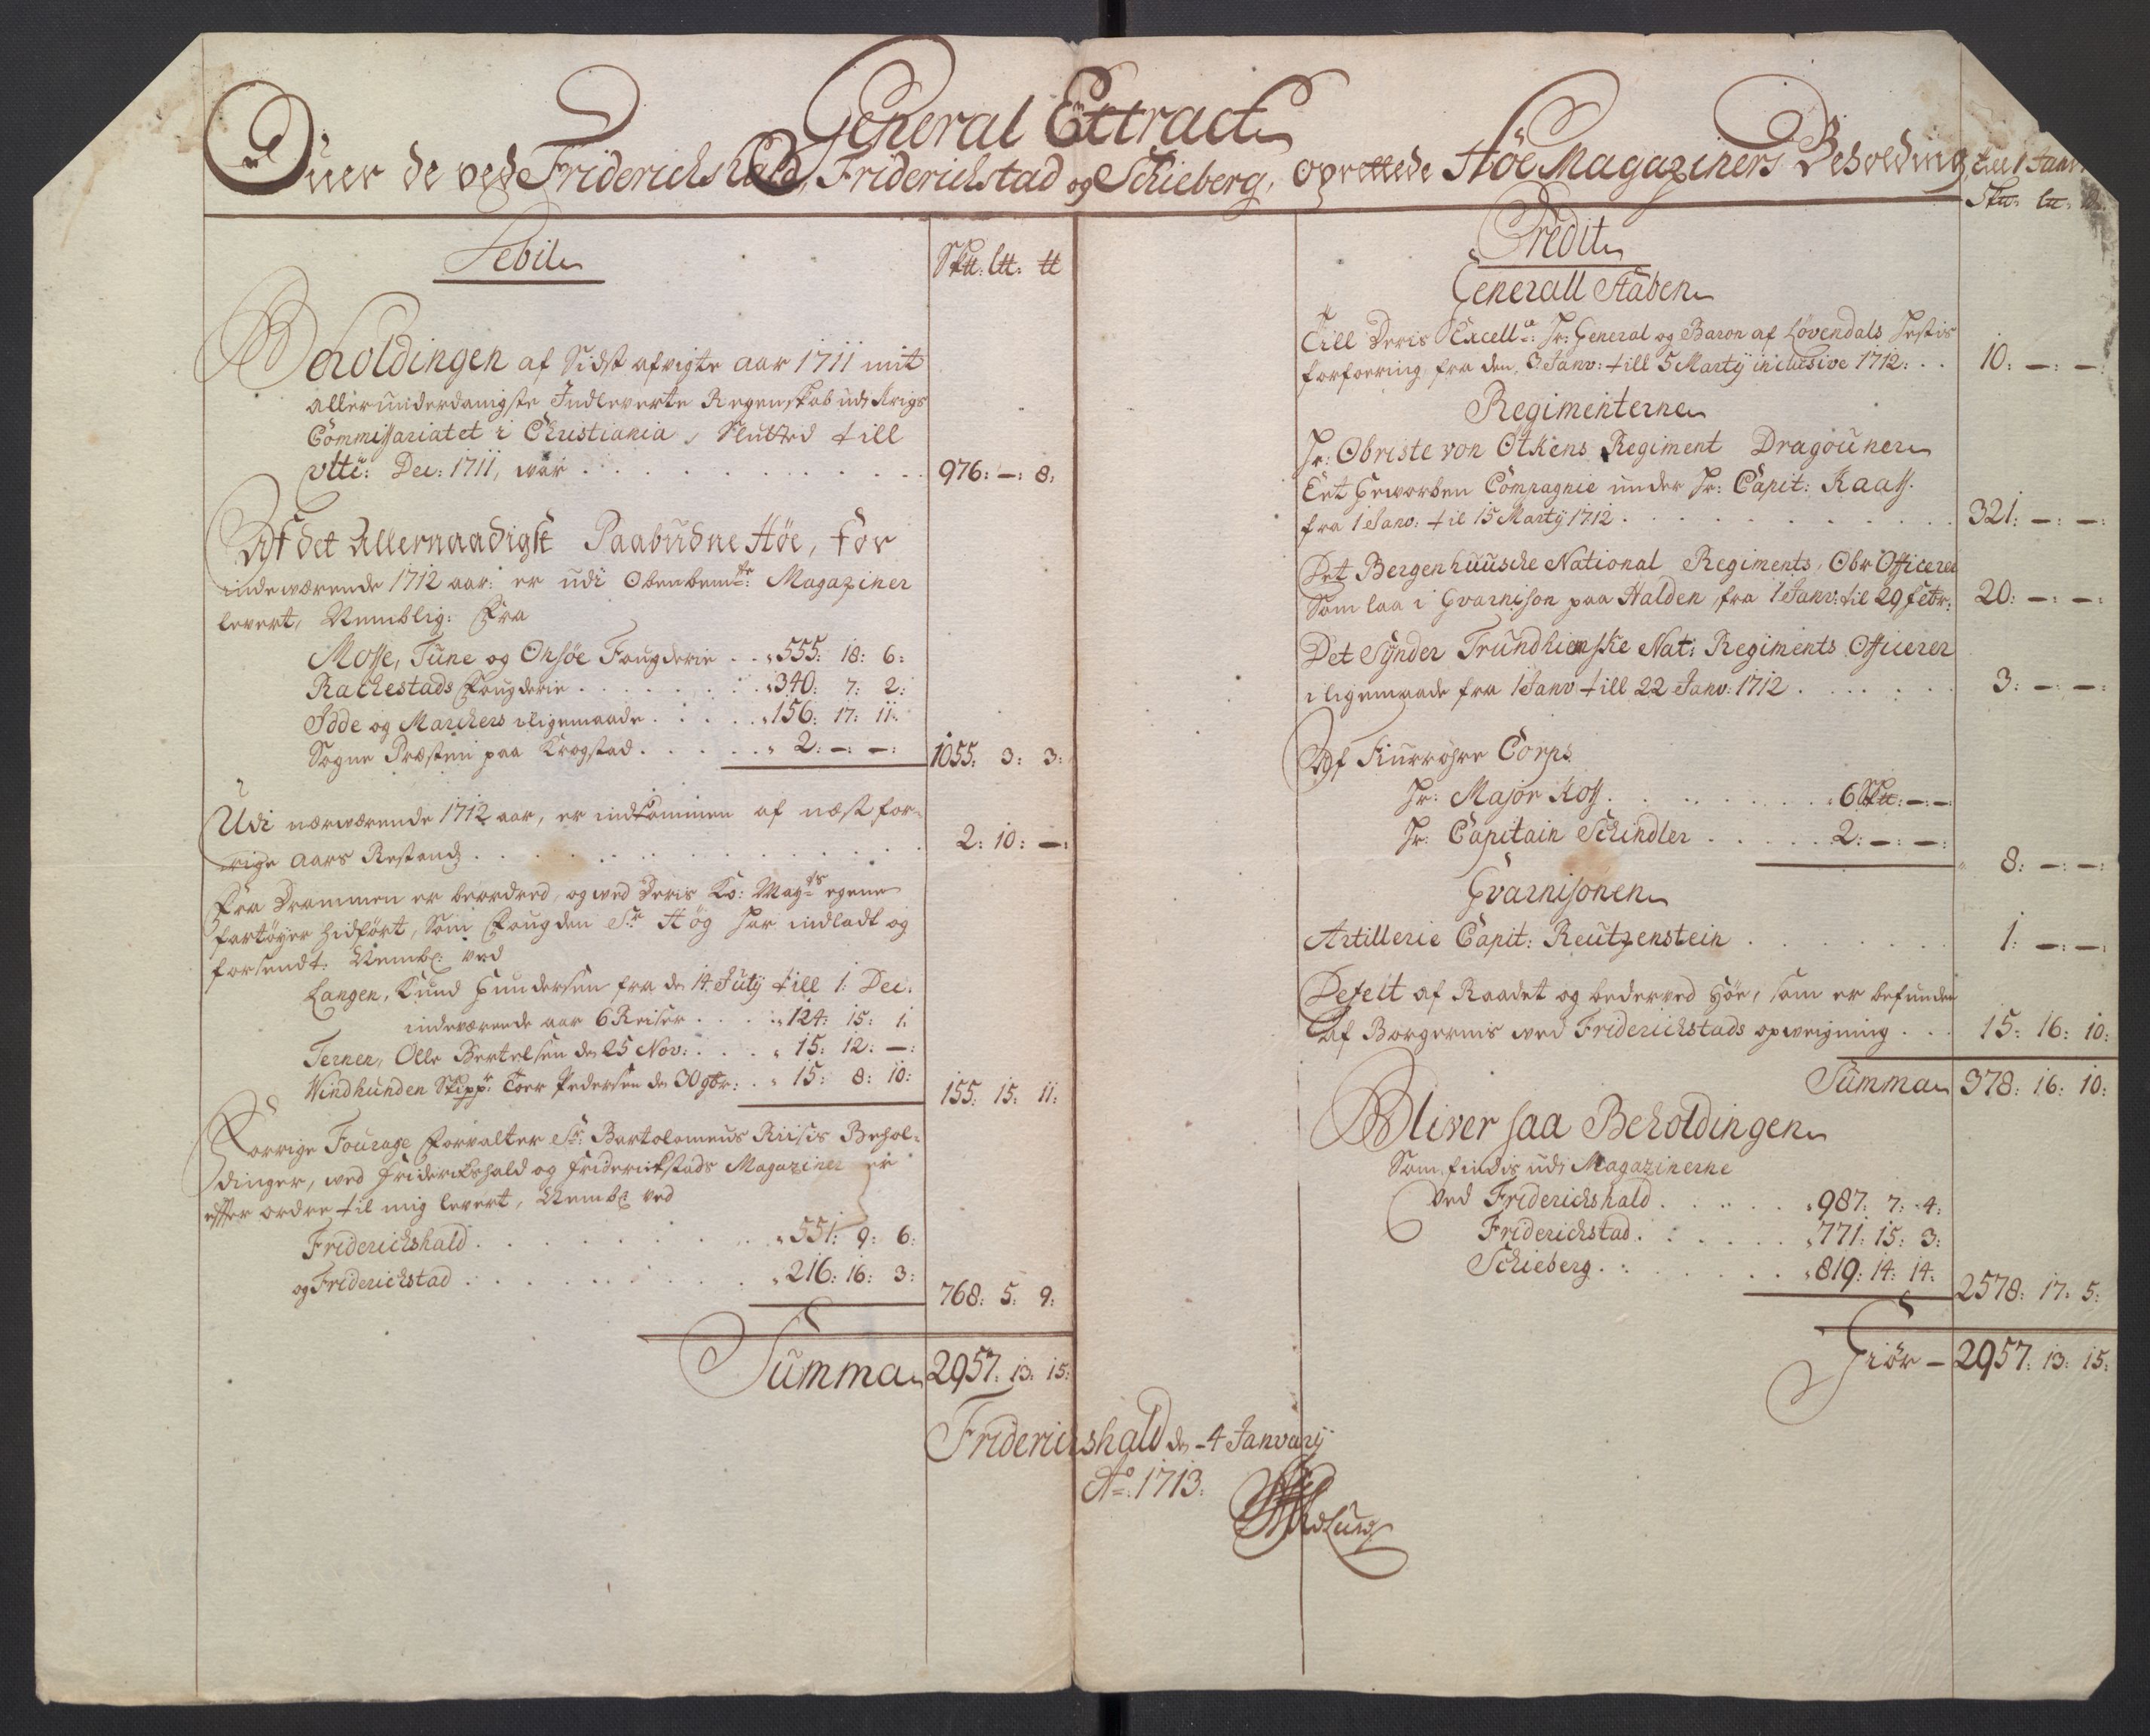 General Extract
Ouer de ved Friderichshald, Friderichstad og Schieberg, oprettede Höe Magaziners Beholding, till 1 Janv
Debit
Sk℔: l℔: ℔
Beholdingen af Sidst afvigte aar 1711 mit
allerunderdanigste Indleverte Regenskab udi Krigs
Commissariatet i Christiania, Slutted till
ulti: Dec: 1711, war . . . 976: –: 8:
Af det Allernaadigst Paabudne Höe, for
indewærende 1712 aar: er udi Obenbemte: Magaziner
levert, Nemblig: Fra
Mosse, Tune og Onsöe Fougderie . . 555: 18: 6:
Rachestads Fougderie . . . 340: 7: 2:
Idde og Marchers iligemaade . . . 156: 17: 11:
Sogne Præsten paa Krogstad . . . 2: –: –:
1055: 3: 3:
Udi nærwærende 1712 aar, er indkommen af næst for-
rige Aars Restands . . . 2: 10: –:
Fra Drammen er beordred, og wed Deris Ko: Mayts egene
fartöyer hidfört, Som Fougden Sr Hög har indladt og
forsendt. Nembl: ved
Langen, Knud Gundersen fra de 14 July till 1: Dec:
indeværende aar 6 Reiser . . . 124: 15: 1:
Ternen, Olle Bertelsen de 25 Nov: . . . 15: 12: –:
Windhunden Skippr: Toer Pedersen de 30 9br: . 15: 8: 10:
155: 15: 11:
Forrige Fourage Forvalter Sr: Bartolomeus Riisis Behol-
dinger, wed Friderichshald og Friderichstads Magaziner er
effter ordre til mig levert, Nembl: ved
Friderichshald . . . 551: 9: 6:
og Friderichstad . . . 216: 16: 3:
768: 5: 9:
Summa 2957: 13: 15:
Sk℔: l℔: ℔
Credit
Generall Staben
Till Deris Excellce: Hr: General og Baron af Løvendals Hestis
forfoering, fra den 3 Janv: till 5 Marty inclusive 1712: . . 10: –: –:
Regimenterne
Hr: Obriste von Otkens Regiment Dragouner
Eet Geworben Compagnie under Hr: Capit: Kaas.
fra 1 Janv: til 15 Marty 1712 . . . 321: –: –:
Det Bergenhuusche National Regiments, Obr Officerer
Som laa i Gvarnison paa Halden, fra 1 Janv: til 29 febr: 20: –: –:
Det Synder Trundhiemske Nat: Regiments Officerer
iligemaade fra 1 Janv till 22 Janv: 1712 . . . 3: –: –:
Af Fiurröhre Corps
Hr: Major Koss . . . 6 Sk℔: –: –:
Hr: Capitain Schindler . . . 2: –: –:
8: –: –:
Gvarnisonen
Artillerie Capit: Reutzenstein . . . 1: –: –:
Defect af Raadet og bederved Höe, som er befunden
af Borgernis wed Friderichstads opweigning . . . 15: 16: 10:
Summa 378: 16: 10:
Bliver saa Beholdingen
Som findis udi Magazinerne
ved Friderichshald . . . 987: 7: 4:
Friderichstad . . . 771: 15: 3:
Schieberg . . . 819: 14: 14:
2578: 17: 5:
Giör – 2957: 13: 15:
Friderichshald de 4 January
Ao: 1713.